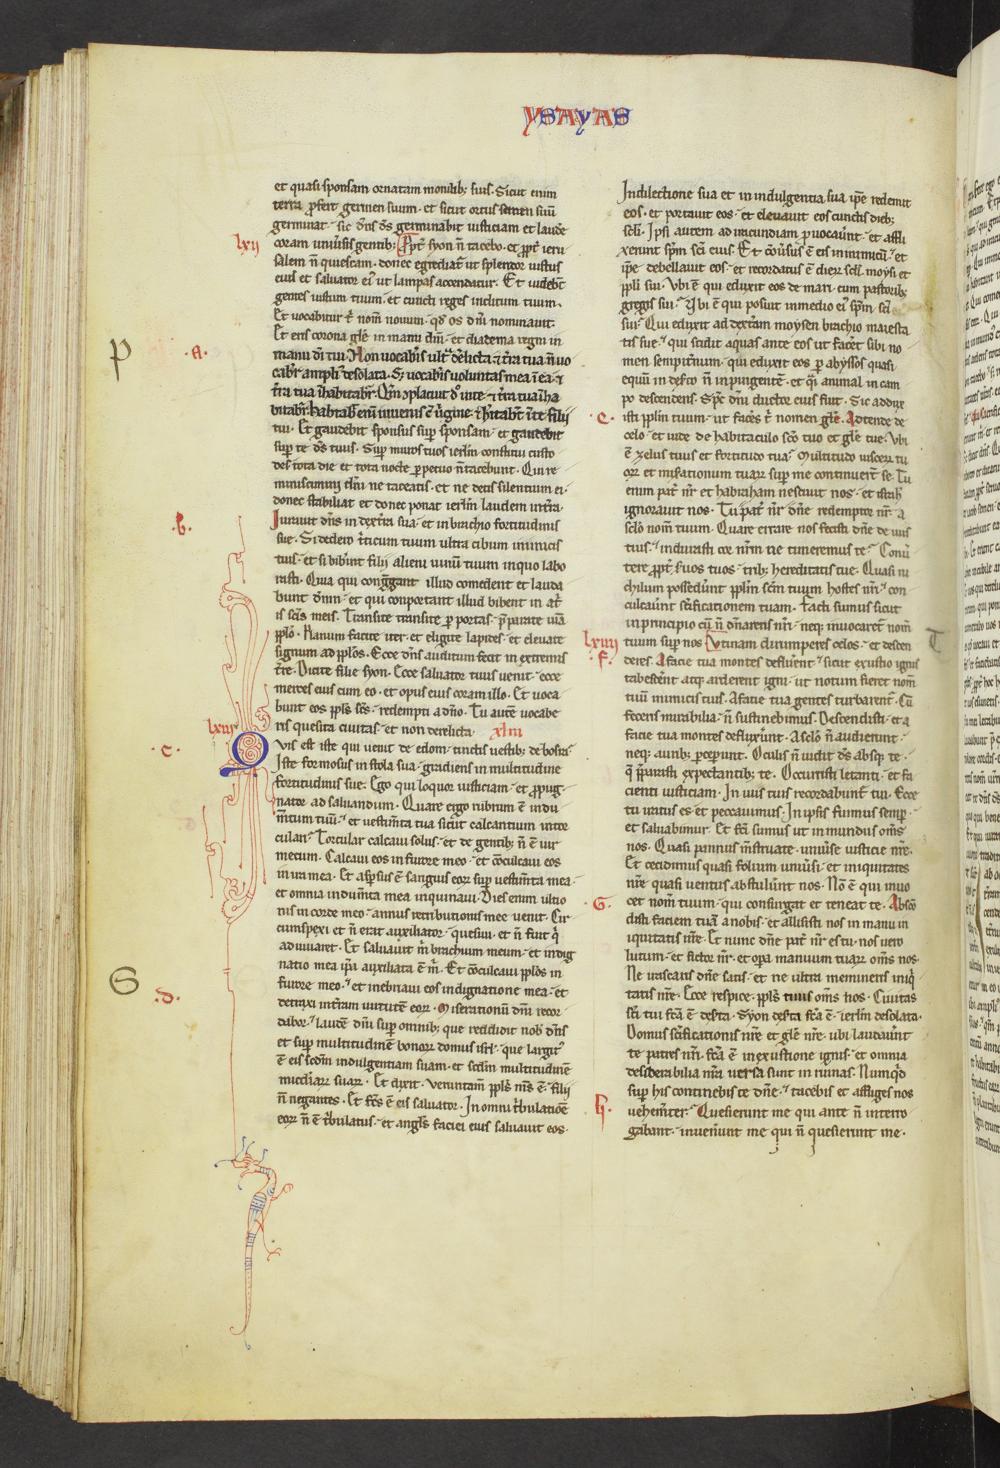 YSAYAS
et quasi sponsam ornatam monilib; suis. Sicut enim
terra ꝓfert germen suum. et sicut ortus semen suū
germinat. sic dn̄s ds̄ germinabit iusticiam et laudē
lxii
coram uniūsis gentib; Ppt̄ syon n̄ tacebo. et ꝓpt̄ ieru
salem n̄ quiescam. donec egrediat᷒ ut splendor iustus
eius et saluator ei᷒ ut lampas accendatur. Et uidebt̄
gentes iustum tuum. et cuncti reges inclitum tuum.
Et uocabitur t̄ nom̄ nouum. qd̄ os dn̄i nominauit.
Et eris corona glē in manu dn̄i. et diadema regni in
P
.a.
manu dī tui. Non uocab̄is ult᷒ derelicta. ⁊ t̄ra tua n̄ uo
cab̄r ampli᷒ desolata. S; uocab̄is uoluntas mea ī ea. ⁊
t̄ra tua īhabitab̄r. Qm̄ ꝯplacuit dn̄o ī te. ⁊ t̄ra tua īha
bitab̄r. habitab̄ enī iuuenis c̄ ūgine. ⁊ h̄itabt̄ ī te filii
tui. Et gaudebit sponsus suꝑ sponsam. et gaudebit
suꝑ te ds̄ tuus. Suꝑ muros tuos ierlm̄ constitui custo
des tota die et tota nocte ꝑpetuo n̄ tacebunt. Qui re
miniscimini dn̄i ne taceatis. et ne detis silentium ei.
donec stabiliat et donec ponat ierlm̄ laudem in t̄ra.
.b.
Iurauit dn̄s in dext̄ra sua. et in brachio fortitudinis
sue. Si dedero t̄ticum tuum ultra cibum inimicis
tuis. et si bibūnt filii alieni uinū tuum in quo labo
rasti. Quia qui cong̃gant illud comedent et lauda
bunt dn̄m. et qui conportant illud bibent in at̄
is sc̄is meis. Transite transite ꝑ portas. p̄parate uiā
ppl̄o. Planum facite iter. et eligite lapides. et eleuate
signum ad ppl̄os. Ecce dn̄s auditum fecit in extremis
t̄re. Dicite filie syon. Ecce saluator tuus uenit. ecce
merces eius cum eo. et opus eius coram illo. Et uoca
bunt eos ppl̄s sc̄s. redempti a dn̄o. Tu autē uocabe
lxiii
ris quesita ciuitas. et non derelicta.
.c.
Quis est iste qui uenit de edom. tinctis uestib; de bosra.
Iste formosus in stola sua. gradiens in multitudine
fortitudinis sue. Ego qui loquor iusticiam. et ꝓpug
nator ad saluandum. Quare ergo rubrum ē indu
mtum tuū. et uestim̄ta tua sicut calcantium in tor
culari. Torcular calcaui solus. et de gentib; n̄ ē uir
mecum. Calcaui eos in furore meo. et cōculcaui eos
in ira mea. Et aspsus ē sanguis eoꝝ suꝑ uestim̄ta mea.
et omnia indum̄ta mea inquinaui. Dies enim ultio
nis in corde meo. annus retributionis mee uenit. Cir
cumspexi et n̄ erat auxiliator. quesiui. et n̄ fuit q̄
adiuuaret. Et saluauit m̄ brachium meum. et indig
natio mea ip̄a auxiliata ē m̄. Et cōculcaui ppl̄os in
S
.d.
furore meo. et inebriaui eos indignatione mea. et
detraxi in t̄ram uirtutē eoꝝ. Miserationū dn̄i recor
dabor. laudē dn̄i suꝑ omnib; que reddidit nob̄ dn̄s
et suꝑ multitudinē bonoꝝ domus isrl̄. que largit᷒
ē eis sc̄dm indulgentiam suam. et sc̄dm multitudinē
mīcdiaꝝ suaꝝ. Et dixit. Veruntam̄ ppl̄s m̄s ē. filii
n̄ negantes. Et fc̄s ē eis saluator. In omni t̄bulatiōe
eoꝝ n̄ ē t̄bulatus. et angl̄s faciei eius saluauit eos.
In dilectione sua et in indulgentia sua ip̄e redemit
eos. et portauit eos. et eleuauit eos cunctis dieb;
scl̄i. Ipsi autem ad iracundiam ꝓuocaūnt. et affli
xerunt sp̄m sc̄i eius. Et cōuūsus ē eis in inimicū. et
ip̄e debellauit eos. et recordatus ē dieꝝ scl̄i. moysi et
ppl̄i sui. Vbi ē qui eduxit eos de mari. cum pastorib;
gregis sui. Vbi ē qui posuit in medio ei᷒ sp̄m sc̄i
sui. Qui eduxit ad dext̄am moysen brachio maiesta
tis sue. qui scidit aquas ante eos ut facet̄ sibi no
men sempit̄num. qui eduxit eos ꝑ abyssos quasi
equū in deserto n̄ inpingentē. et q̄i animal in cam
po descendens. Sp̄c dn̄i ductor eius fuit. Sic addux
.e.
isti ppl̄m tuum. ut faces t̄ nomen glē. Adtende de
celo. et uide de habitaculo sc̄o tuo et glē tue. Vbi
ē zelus tuus et fortitudo tua. multitudo uisceꝝ tu
oꝝ et mis̄ationum tuaꝝ suꝑ me continuert̄ se. Tu
enim pat᷒ nr̄ et habraham nesciuit nos. et isrl̄
ignorauit nos. Tu pat᷒ nr̄ dn̄e redemptor nr̄. a
sclo nom̄ tuum. Quare errare nos fecisti dn̄e de uiis
tuis. indurasti cor nr̄m ne timeremus te. Conū
tere ꝓpt̄ suos tuos. trib; hereditatis tue. Quasi ni
chilum possedūnt ppl̄m sc̄m tuum hostes nr̄i. con
culcaūnt sc̄ificationem tuam. Facti sumus sicut
in principio cū n̄ dn̄areris nr̄i. neq; inuocaret᷒ nom̄
lxiiii
T
tuum suꝑ nos. Vtinam dirumperes celos. et descen
.f.
deres. A facie tua montes defluēnt. sicut exustio ignis
tabescēnt. atq; arderent igni. ut notum fieret nom̄
tuū inimicis tuis. A facie tua gentes turbarent᷒. Cū
feceris mirabilia. n̄ sustinebimus. Descendisti. et a
facie tua montes defluxūnt. A sclō n̄ audierunt.
neq; aurib; ꝑceꝑunt. Oculus n̄ uidit ds̄ absq; te.
q̄ p̄parasti expectantib; te. Occurristi letanti. et fa
cienti iusticiam. In uiis tuis recordabunt᷒ tui. Ecce
tu iratus es. et peccauimus. In ipsis fuimus semꝑ.
et saluabimur. Et fc̄i sumus ut inmundus om̄s
nos. Quasi pannus m̄struate. uniūse iusticie nr̄e.
Et cecidimus quasi folium uniūsi. et iniquitates
nr̄e quasi uentus abstulūnt nos. Nō ē qui inuo
.G.
cet nom̄ tuum. qui consurgat et teneat te. Absco
disti faciem tuā a nobis. et allisisti nos in manu in
iquitatis nr̄e. Et nunc dn̄e pat᷒ nr̄ es tu. nos uero
lutum. et fictor nr̄. et opa manuum tuaꝝ om̄s nos.
Ne irascaris dn̄e satis. et ne ultra memineris iniq̄
tatis nr̄e. Ecce respice. ppl̄s tuus om̄s nos. Ciuitas
sc̄i tui fc̄a ē deserta. Syon deserta fc̄a ē. ierlm̄ desolata.
Domus sc̄ificationis nr̄e et glē nr̄e. ubi laudaūnt
te patres nr̄i. fc̄a ē in exustione ignis. et omnia
desiderabilia nr̄a uersa sunt in ruinas. Nunquid
suꝑ his continebis te dn̄e. tacebis et affliges nos
.h.
uehem̄ter. Quesierunt me qui ante n̄ interro
gabant. inuenerunt me qui n̄ quesierunt me.